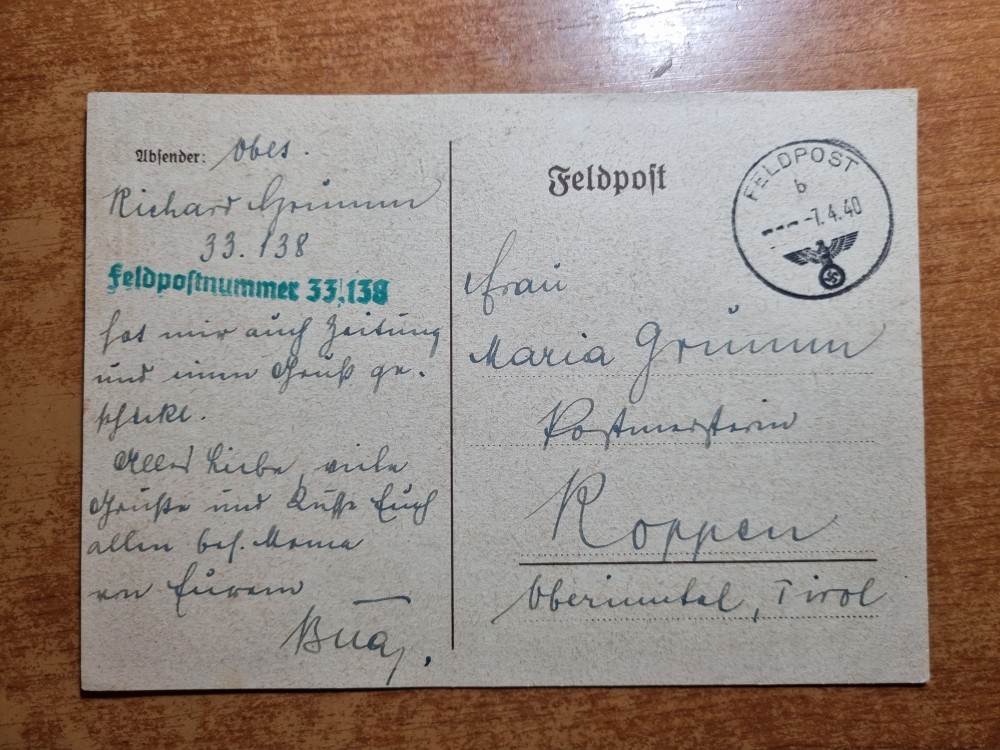 Absender: Obes.
Richard Grimm
33.138
Feldpostnummer 33,138
hat mir auch Zeitung
und einen Gruß ge-
schickt.
Alles Liebe, viele
Grüße und Küsse Euch
allen bes. Mama
von Eurem
Feldpost
FELDPOST
b
-7.4.40
Frau
Maria Grimm
Postmeisterin
Roppen
Oberinntal, Tirol